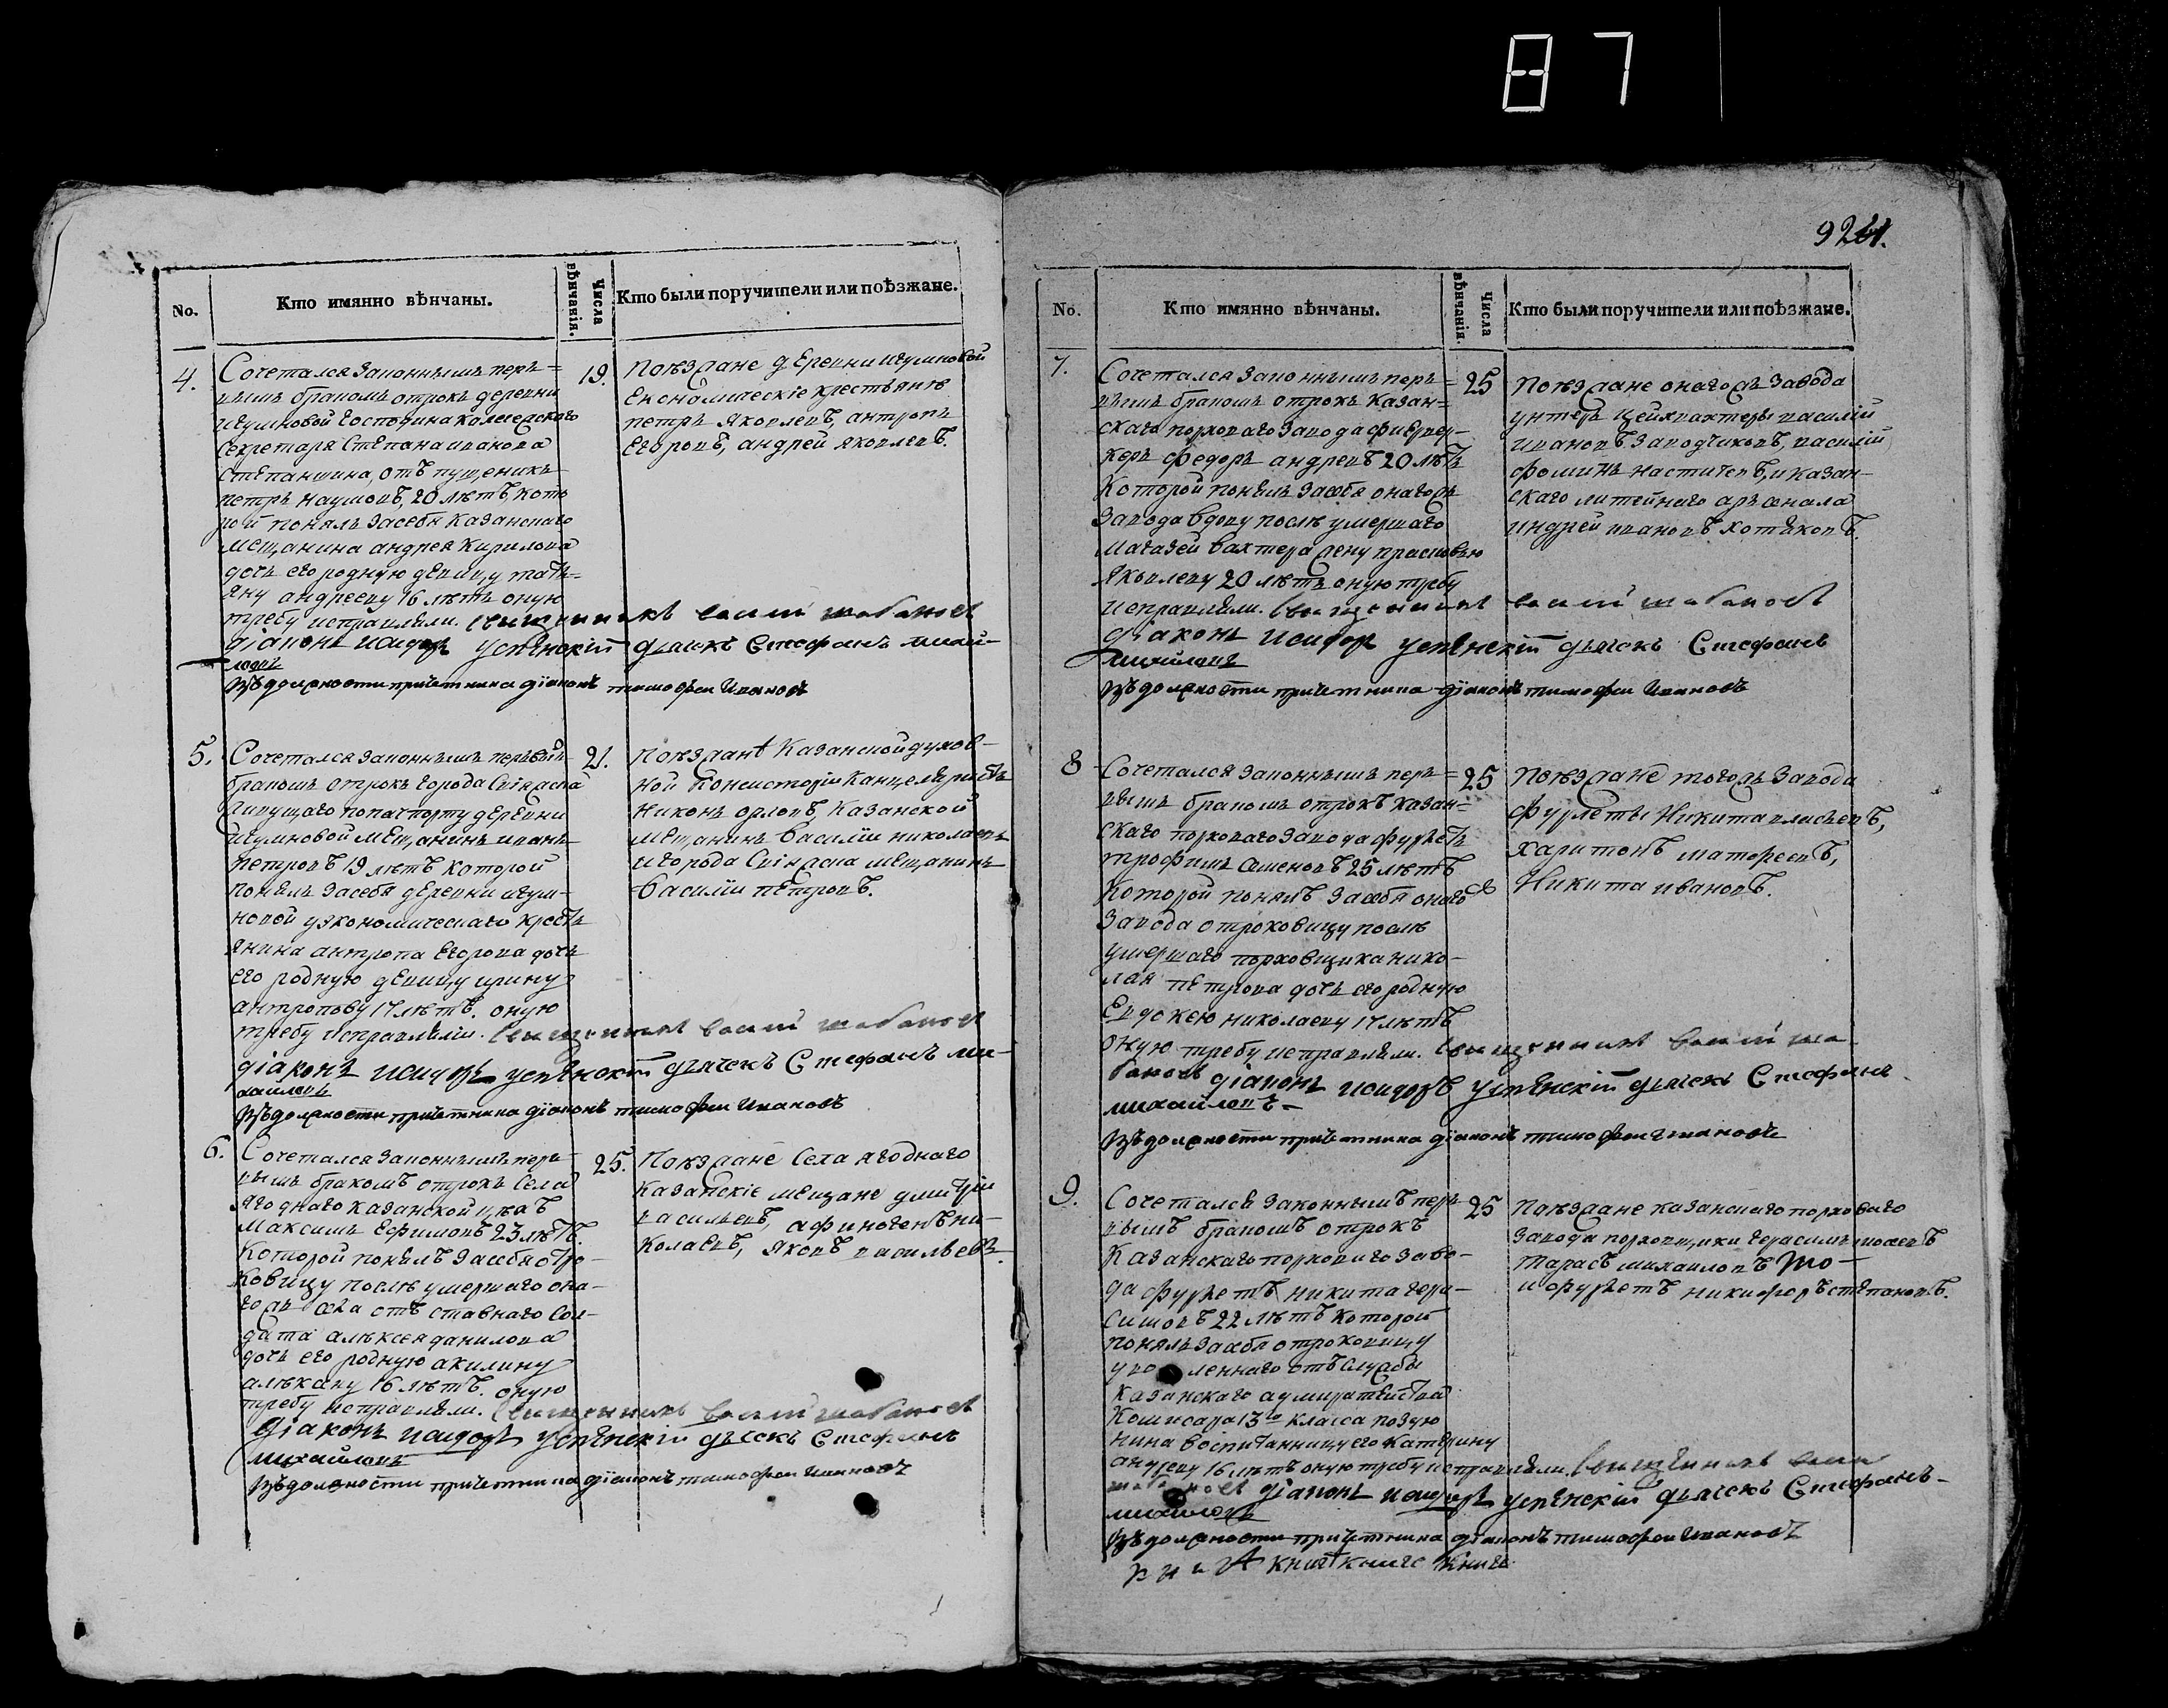 87
9261.
No.
Кто имянно вѣнчаны.
Числа вѣнчанія.
Кто были поручители или поѣзжане.
4.
Сочетался законнымъ пер=
вымъ бракомъ отрокъ деревни
игумновой господина каллежскаго
секретаря Степана иванова
отъ пущеникъ
петръ наумовъ, 20 лѣтъ кото
рой понялъ засебя казанскаго
мещанина андрея Кирилова
дочь его родную девицу татя=
яну андрееву 16 лѣтъ оную
требу исправляли. Священникъ василий шабановъ
діаконъ исидоръ успенскій дьячекъ Стефанъ михай-
ловъ
въ должности причетника діаконъ тимофей Ивановъ
19.
поѣзжане деревни игумновой
економическіе крестьяне
петръ яковлевъ, антропъ
Егоровъ, андрей яковлевъ.
5.
Сочетался законнымъ первымъ
бракомъ отрокъ города Свіяжска
живущаго попашпорту деревни
игумновой мещанинъ иванъ
петровъ 19 лѣтъ которой
понялъ засебя деревни игум-
новой уэкономическаго кресть
янина антропа Егорова дочь
его родную девицу ирину
антропову 17 лѣтъ. оную
требу исправляли. Священникъ василий шабановъ
діаконъ исидоръ успенскій дьячекъ Стефанъ ми-
хайловъ
въ должности причетника діаконъ тимофей Ивановъ
21.
поѣзжанѣ Казанской духов-
ной Консисторіи канцеляристъ
никонъ орловъ, Казанской
мещанинъ василіи николаевъ
игорода Свіяжска мещанинъ
василіи петровъ.
6.
Сочетался законнымъ пер-
вымъ бракомъ отрокъ села
ягоднаго казанской цѣховъ
максимъ ефимовъ 23 лѣтъ.
Которой понялъ засебя отро-
ковицу послѣ умершаго она-
гожъ села отъ ставнаго сол-
дата алѣксея данилова
дочь его родную акилину
алѣксеву 16 лѣтъ. оную
требу исправляли. Священникъ василий шабановъ
діаконъ исидоръ успенскій дьячекъ Стефанъ
михайловъ
въ должности причетника діаконъ тимофей Ивановъ
25.
Поѣзжане села ягоднаго
казанскіе мещане димитрій
васильевъ, афиногенъ ни-
колаевъ, яковъ васильевъ.
No.
Кто имянно вѣнчаны.
Числа вѣнчанія.
Кто были поручители или поѣзжане.
7.
Сочетался законнымъ пер=
вымъ бракомъ отрокъ казан=
скаго пороховаго завода фиервер-
керъ федоръ андревъ 20 лѣтъ
Которой понялъ засебя онагожъ
завода вдову послѣ умершаго
магазей вахтера жену прасковью
яковлеву 20 лѣтъ оную требу
исправляли. Священникъ василий шабановъ
діаконъ исидоръ успенскій дьячекъ Стефанъ
михайловъ
въ должности причетника діаконъ тимофей Ивановъ
25
Поѣзжане онагожъ завода
унтеръ цейхвахтеры василій
ивановъ заводчиковъ, василій
фоминъ и казан-
скаго литейнаго арсенала
андрей ивановъ хотяковъ.
8
Сочетался законнымъ пер=
вымъ бракомъ отрокъ казан=
скаго пороховаго завода фурлетъ
трофимъ семеновъ 25 лѣтъ
Которой понялъ засебя онаго
завода отроковицу послѣ
умершаго пороховщика нико-
лая петрова дочь его родную
Евдокею николаеву 17 лѣтъ
оную требу исправляли. Священникъ василий ша-
бановъ діаконъ исидоръ успенскій дьячекъ Стефанъ
михайловъ-
въ должности причетника діаконъ тимофей Ивановъ
25
поѣзжане тогожъ завода
фурлеты Никита
харитонъ матофеевъ,
Никита ивановъ.
9.
Сочетался законнымъ пер-
вымъ бракомъ отрокъ
казанскаго пороховаго заво-
да фурлетъ никита гера-
симовъ 22 лѣтъ которой
понялъ засебя отроковицу
уволеннаго отъ службы
казанскаго адмиралтейства
комисара 13го класса
воспитанницу его катерину
андрееву 16 лѣтъ оную требу исправляли. Священникъ васил
шабановъ діаконъ исидоръ успенскій дьячекъ Стефанъ-
михайловъ
въ должности причетника діаконъ тимофей Ивановъ
книге
25
поѣзжане казанскаго пороховаго
завода пороховщики герасимъ
тарасъ михаиловъ
и фурлетъ никифоръ степановъ.